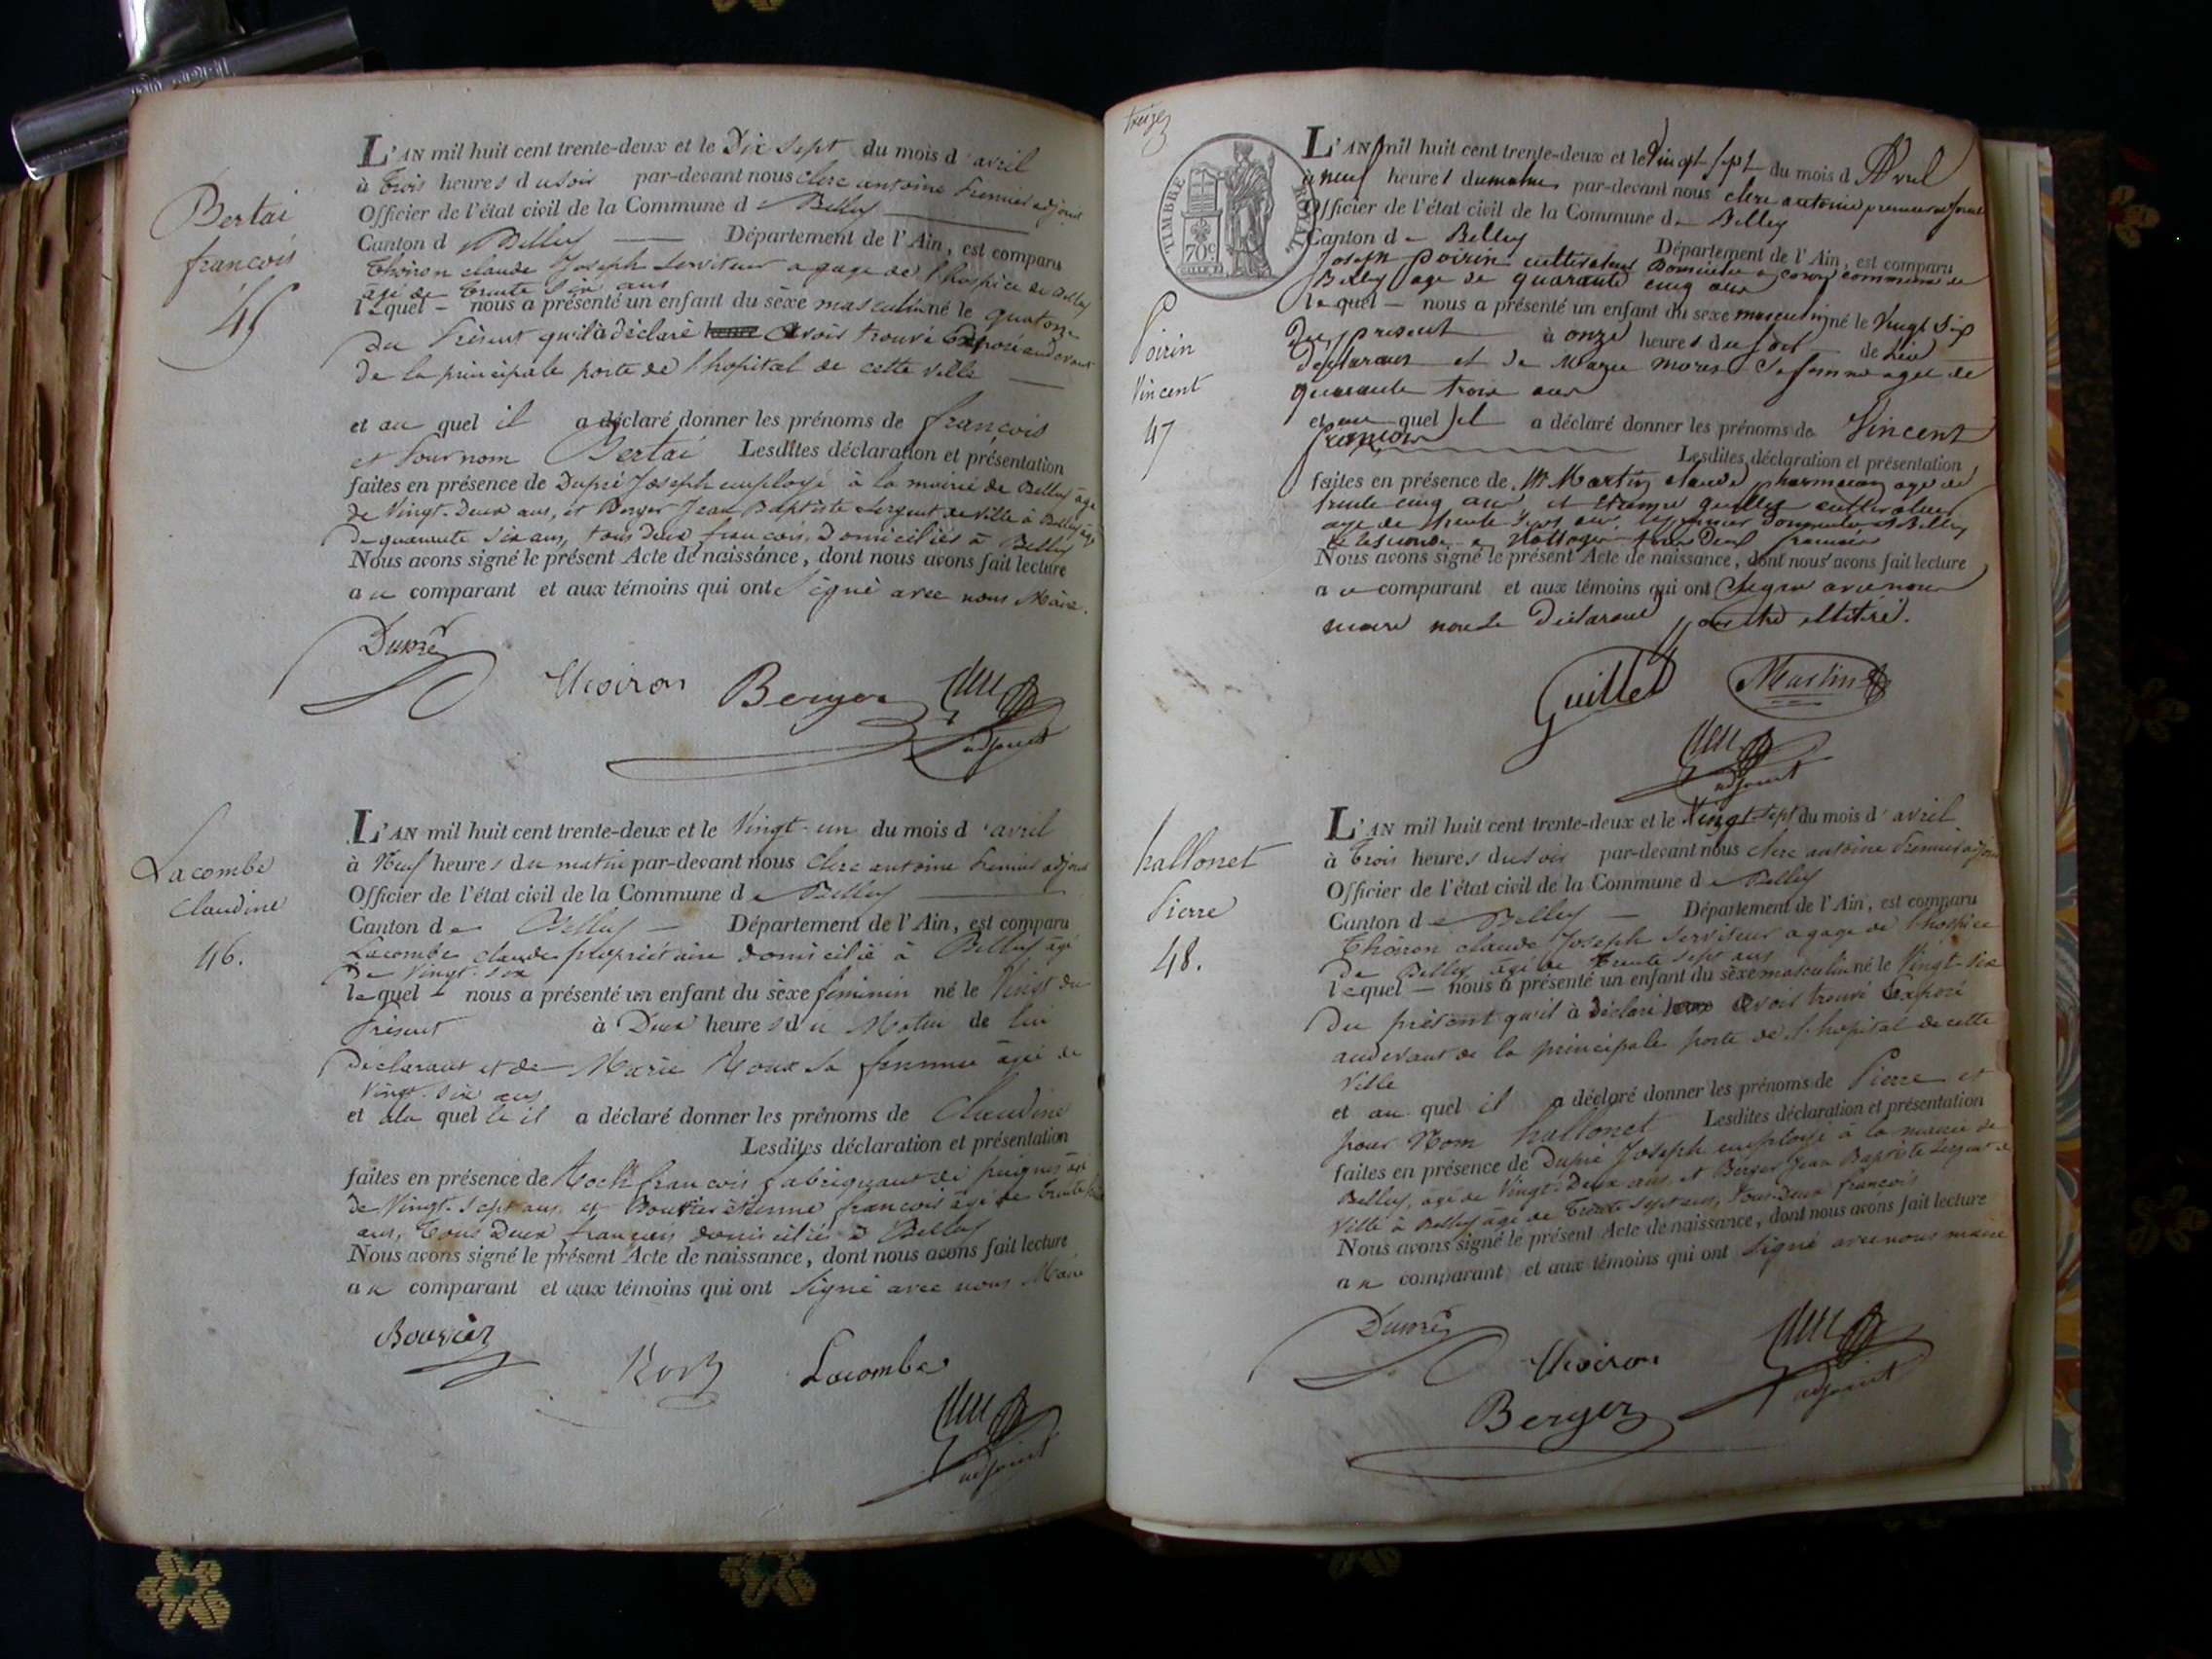 Bertai
françois
45
L'AN mil huit cent trente-deux et le Dix sept du mois d'avril
à Trois heures du soir par-devant nous clerc antoine Premier adjoint
Officier de l'état civil de la Commune de Belley
Canton de Belley Département de l'Ain, est comparu
Thoiron claude Joseph serviteur a gage de l'hospice de Belley
âgé de Trente six ans
lequel nous a présenté un enfant du sèxe masculin né le quatorze
du Présent qu'il à déclaré avoir trouvé Exposé au devant
de la principale porte de l'hopital de cette ville
et au quel il a déclaré donner les prénoms de françois
et Pour nom Bertai Lesdites déclaration et présentation
faites en présence de Dupré Joseph employé à la mairie de Belley âgé
de Vingt-Deux ans, et Berger Jean Baptiste sergent de ville à Belley âgé
de quarante six ans, tous deux françois, Domiciliés à Belley
Nous avons signé le présent Acte de naissance, dont nous avons fait lecture
au comparant et aux témoins qui ont Signé avec nous Maire.
Dupré
Thoiron Berger
adjoint
Lacombe
Claudine
46.
L'AN mil huit cent trente-deux et le Vingt-un du mois d'avril
à Neuf heures du matin par-devant nous Clerc antoine Premier adjoint
Officier de l'état civil de la Commune de Belley
Canton de Belley Département de l'Ain, est comparu
Lacombe claude propriétaire domicilié à Belley âgé
De Vingt-six
lequel nous a présenté un enfant du sèxe féminin né le Vingt du
Présent à Deux heures du Matin de lui
Déclarant et de Marie Roux sa femme âgé de
Vingt-six ans
et à la quelle il a déclaré donner les prénoms de Claudine
Lesdites déclaration et présentation
faites en présence de Rock françois fabriquant de peignes âgé
de Vingt-sept ans et Bouvier étienne françois âgé de Trente
ans, Tous Deux français domiciliés à Belley
Nous avons signé le présent Acte de naissance, dont nous avons fait lecture
au comparant et aux témoins qui ont Signé avec nous Maire
Bouvier
Rock Lacombe
adjoint
treize
TIMBRE ROYAL
70c
Poirin
Vincent
47
L'AN mil huit cent trente-deux et le Vingt sept du mois d'Avril
à neuf heures du matin par-devant nous clerc antoine premier adjoint
Officier de l'état civil de la Commune de Belley
Canton de Belley Département de l'Ain, est comparu
Joseph poirin cultivateur Domicilié a coron commune de
Belley age de quarante cinq ans
lequel nous a présenté un enfant du sexe masculin né le Vingt Six
du present à onze heures du soir de lui
declarant et de Marie Morin Sa femme agee de
quarante trois ans
et au quel il a déclaré donner les prénoms de Vincent
françois
Lesdites déclaration et présentation
faites en présence de Mr Martin claude pharmacien age de
trente cinq ans et guillet cultivateur
age de trente ans, le premier Domicilié a Belley
le second a tous Deux francais
Nous avons signé le présent Acte de naissance, dont nous avons fait lecture
au comparant et aux témoins qui ont Signé avec nous
maire non le Déclarant pour être illitéré.
Guillet Martin
adjoint
hallonet
Pierre
48.
L'AN mil huit cent trente-deux et le Vingt-sept du mois d'avril
à Trois heures du soir par-devant nous clerc antoine Premier adjoint
Officier de l'état civil de la Commune de Belley
Canton de Belley Département de l'Ain, est comparu
Thoiron claude Joseph serviteur a gage de l'hospice
De Belley âgé de Trente sept ans
lequel nous a présenté un enfant du sèxe masculin né le Vingt-six
Du présent qu'il à Déclaré avoir trouvé Exposé
au devant de la principale porte de l'hopital de cette
Ville
et au quel il a déclaré donner les prénoms de Pierre et
pour Nom hallonet Lesdites déclaration et présentation
faites en présence de Dupré Joseph employé à la mairie de
Belley, âgé de Vingt-Deux ans et Berger Jean Baptiste sergent de
Ville à Belley âgé de Trente sept ans, Tous-Deux françois
Nous avons signé le présent Acte de naissance, dont nous avons fait lecture
au comparant et aux témoins qui ont Signé avec nous maire
Dupré
Thoiron
adjoint
Berger